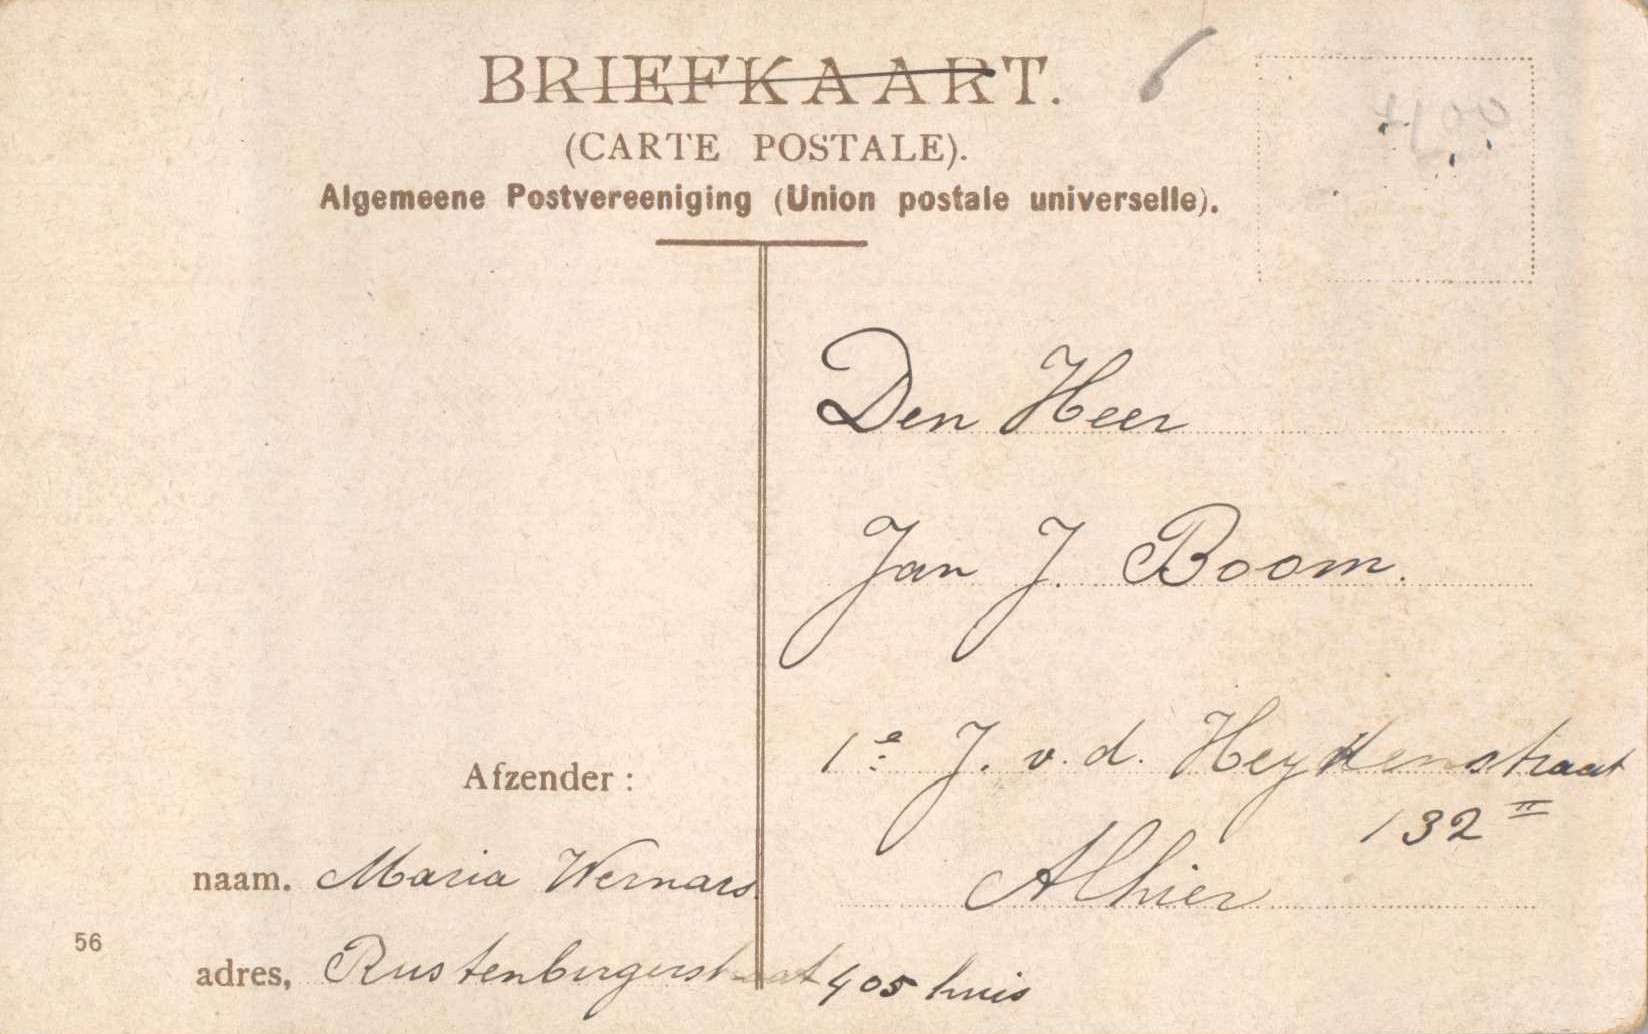 BRIEFKAART.
6
(CARTE POSTALE).
Algemeene Postvereeniging (Union postale universelle).
Den Heer
Jan J. Boom.
1e J. v. d. Heydenstraat
132 II
Alhier
Afzender :
naam. Maria Wernars
56
adres, Rustenburgerstraat 405 huis